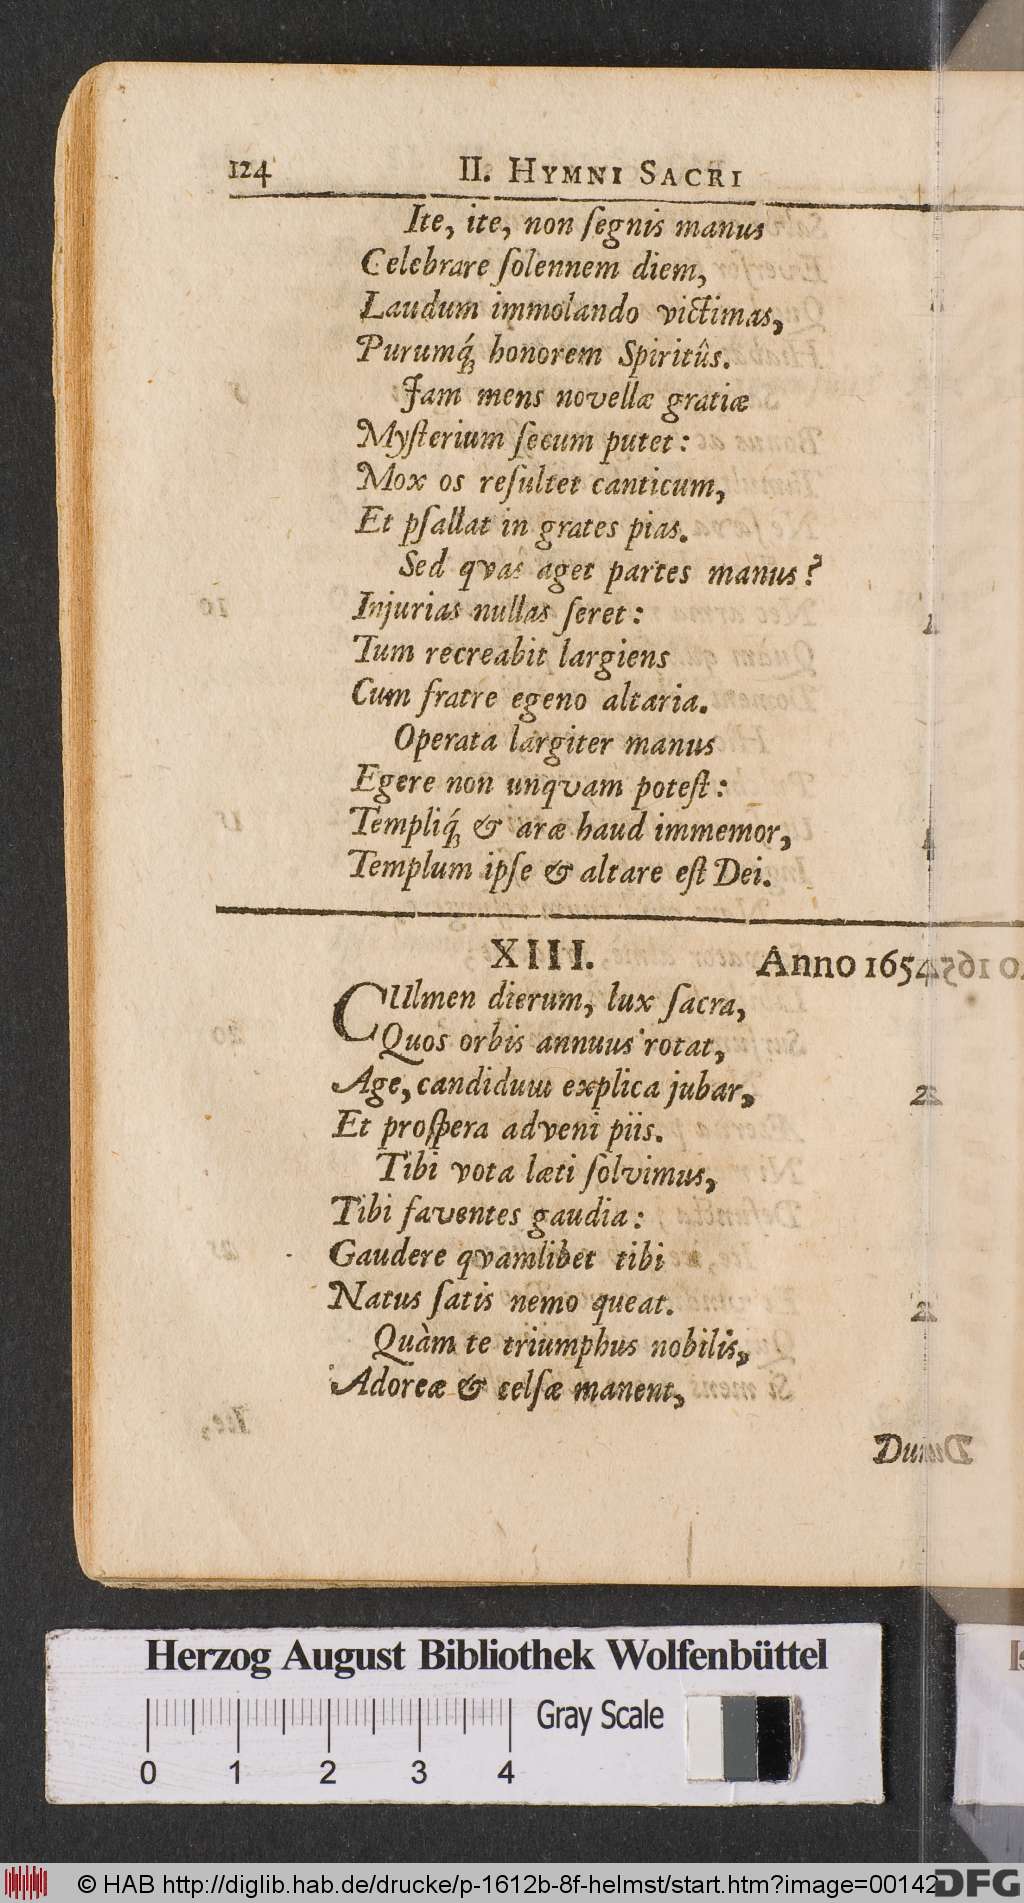 124 II. HYMNI SACRI
Ite, ite, non ſegnis manus
Celebrare ſolennem diem,
Laudum immolando victimas,
Purumq́; honorem Spiritûs.
Jam mens novellæ gratiæ
Myſterium ſecum putet:
Mox os reſultet canticum,
Et pſallat in grates pias.
Sed qvas aget partes manus?
Injurias nullas feret:
Tum recreabit largiens
Cum fratre egeno altaria.
Operata largiter manus
Egere non unqvam poteſt:
Templiq́; & aræ haud immemor,
Templum ipſe & altare eſt Dei.
XIII. Anno 1654
CUlmen dierum, lux ſacra,
Quos orbis annuus rotat,
Age, candidum explica jubar,
Et proſpera adveni piis.
Tibi vota læti ſolvimus,
Tibi faventes gaudia:
Gaudere qvamlibet tibi
Natus ſatis nemo queat.
Quàm te triumphus nobilis,
Adoreæ & celſæ manent,
Herzog August Bibliothek Wolfenbüttel
Gray Scale
0 1 2 3 4
© HAB http://diglib.hab.de/drucke/p-1612b-8f-helmst/start.htm?image=00142
DFG